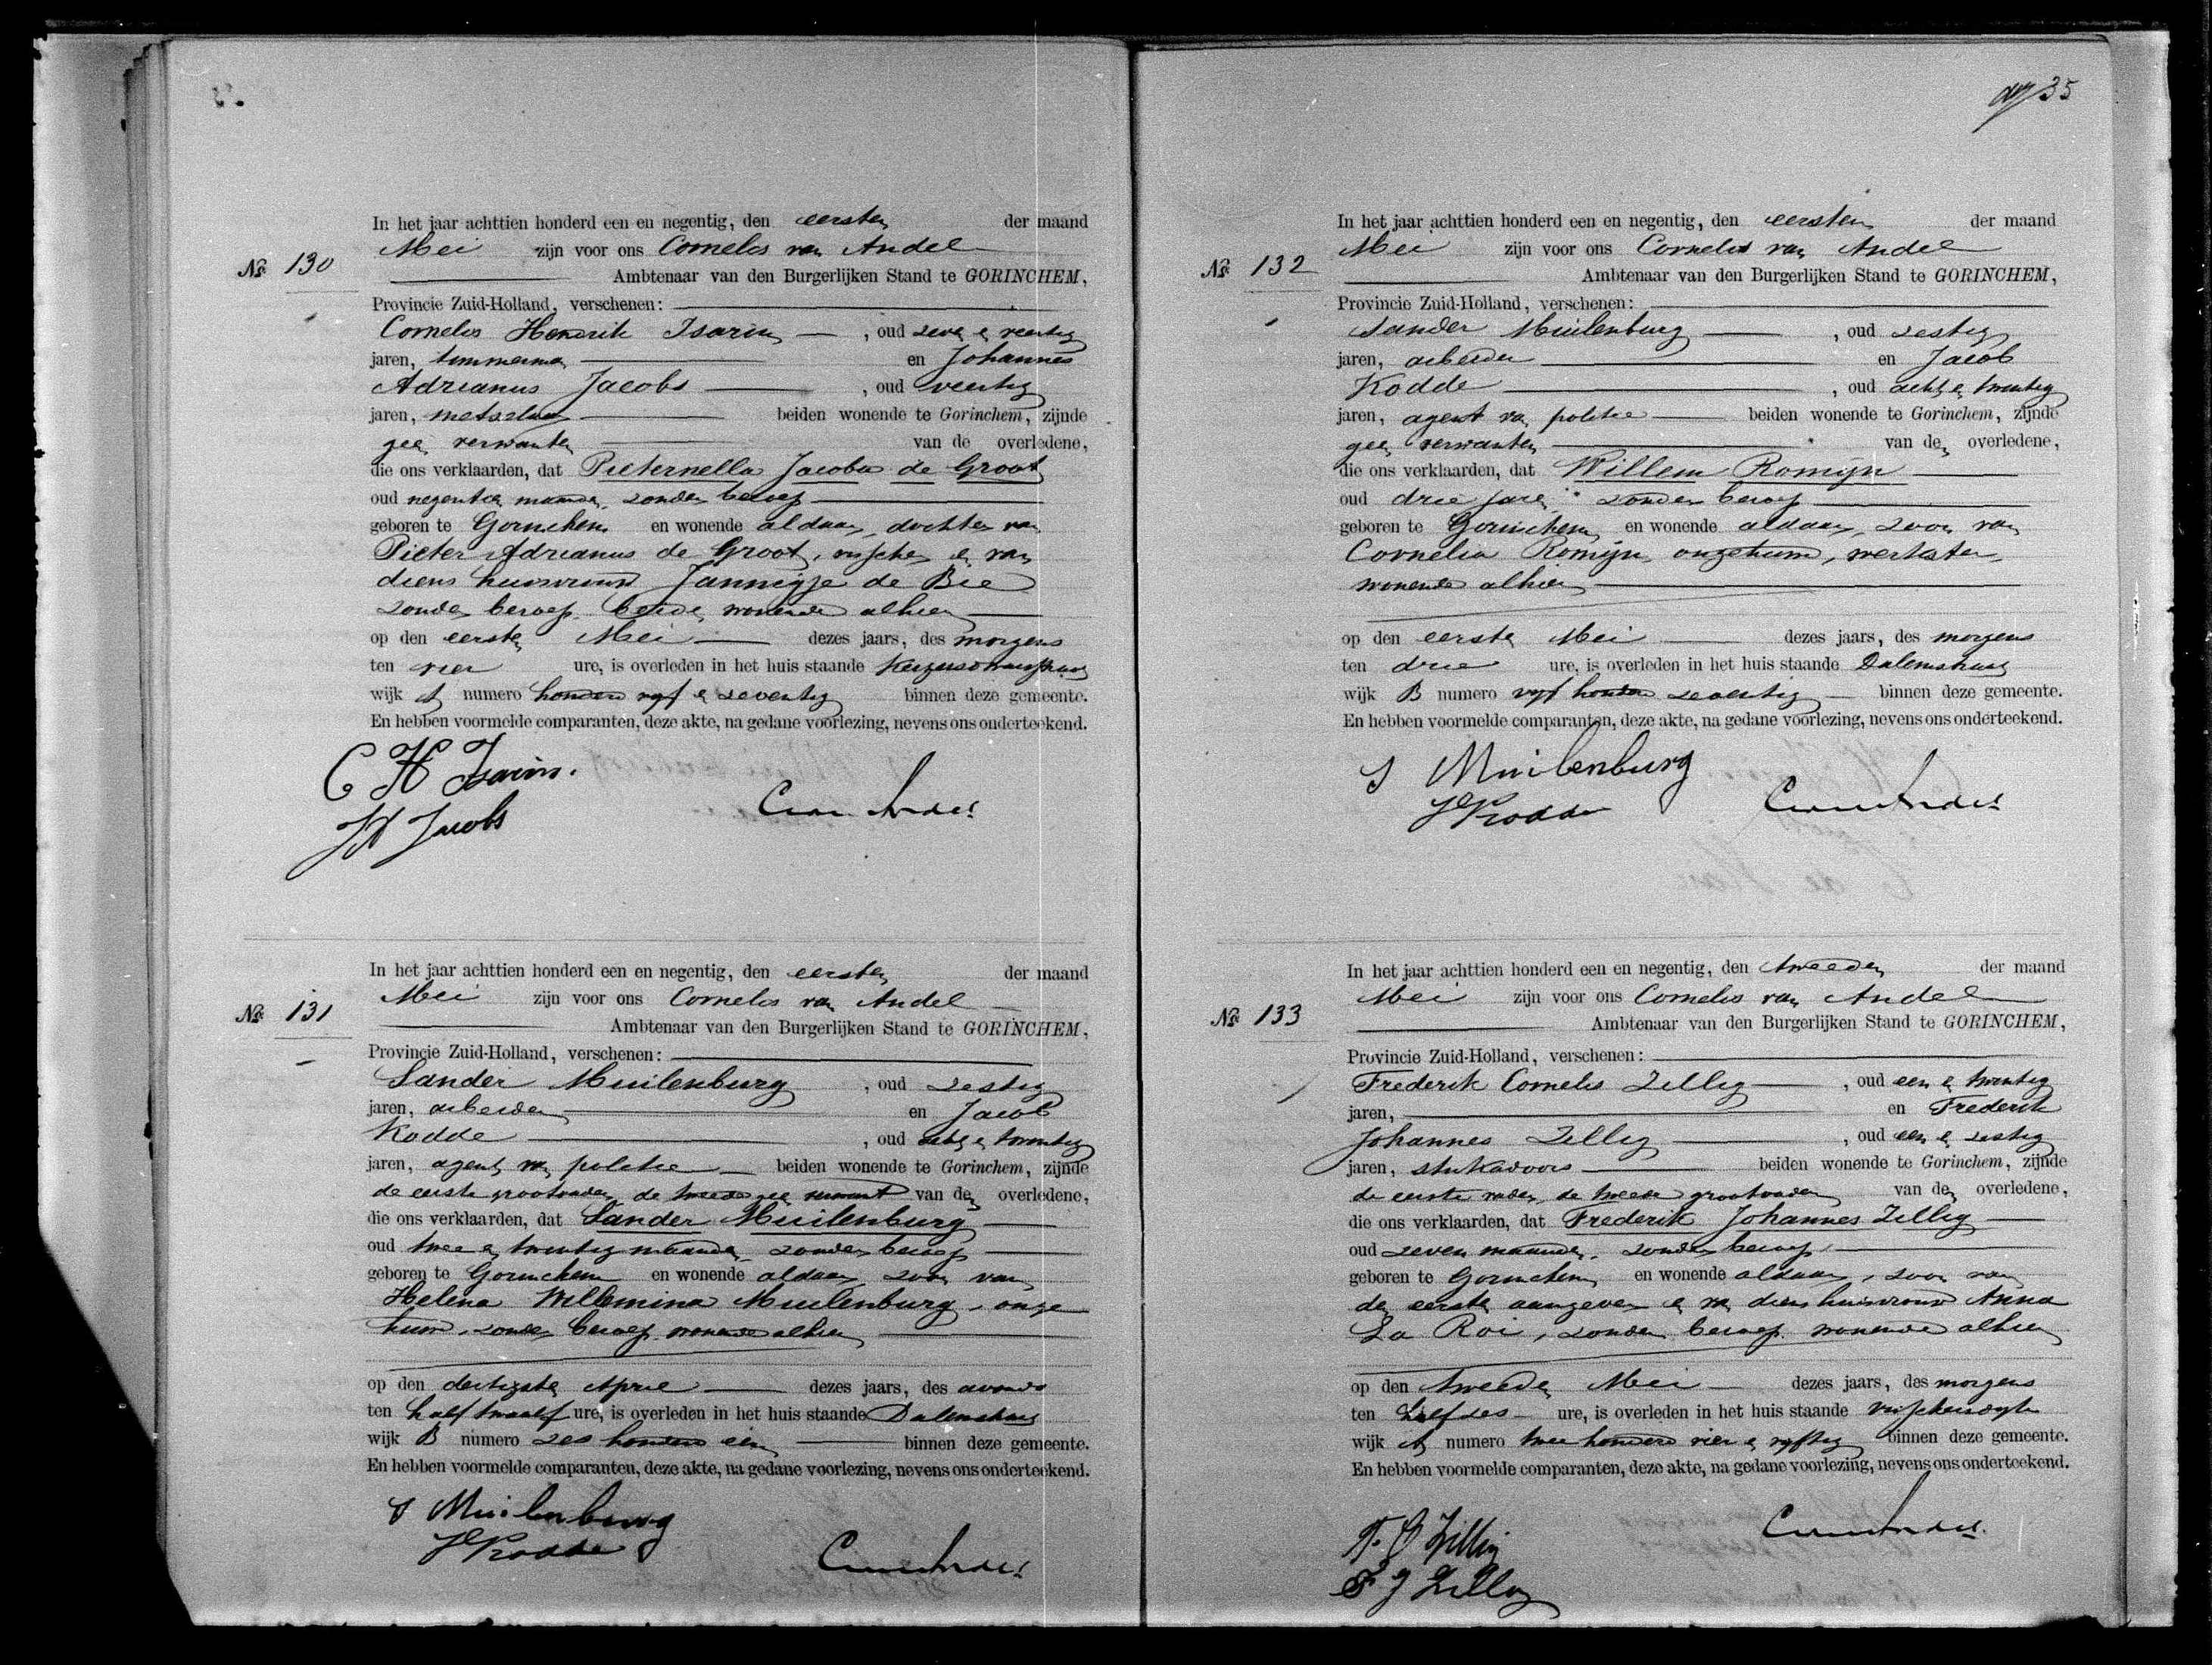 In het jaar achttien honderd een en negentig, den eersten der maand
Mei zijn voor ons Cornelis van Andel
No. 130
Ambtenaar van den Burgerlijken Stand te GORINCHEM,
Provincie Zuid-Holland, verschenen:
Cornelis Hendrik Isarin, oud zeven en veertig
jaren, timmerman en Johannes
Adrianus Jacobs, oud veertig
jaren, metselaar beiden wonende te Gorinchem, zijnde
geen verwanten van de overledene,
die ons verklaarden, dat Pieternella Jacoba de Groot
oud negentien maanden, zonder beroep
geboren te Gorinchem en wonende aldaar, dochter van
Pieter Adrianus de Groot, visscher en van
diens huisvrouw Jannigje de Bie
zonder beroep, beide wonende alhier
op den eersten Mei dezes jaars, des morgens
ten vier ure, is overleden in het huis staande
wijk A numero honderd vijf en zeventig binnen deze gemeente.
En hebben voormelde comparanten, deze akte, na gedane voorlezing, nevens ons onderteekend.
C H Isarin.
JA Jacobs
C van Andel
In het jaar achttien honderd een en negentig, den eersten der maand
Mei zijn voor ons Cornelis van Andel
No. 131
Ambtenaar van den Burgerlijken Stand te GORINCHEM,
Provincie Zuid-Holland, verschenen:
Sander Muilenburg, oud zestig
jaren, arbeider en Jacob
Kodde, oud acht en twintig
jaren, agent van politie beiden wonende te Gorinchem, zijnde
de eerste grootvader, de tweede geen verwant van den overledene,
die ons verklaarden, dat Sander Muilenburg
oud twee en twintig maanden, zonder beroep
geboren te Gorinchem en wonende aldaar, zoon van
Helena Willemina Muilenburg, onge
huwd, zonder beroep, wonende alhier
op den dertigsten April dezes jaars, des avonds
ten half twaalf ure, is overleden in het huis staande Dalemshaag
wijk B numero zes honderd een binnen deze gemeente.
En hebben voormelde comparanten, deze akte, na gedane voorlezing, nevens ons onderteekend.
S Muilenburg
J Kodde
C van Andel
35
In het jaar achttien honderd een en negentig, den eersten der maand
Mei zijn voor ons Cornelis van Andel
No. 132
Ambtenaar van den Burgerlijken Stand te GORINCHEM,
Provincie Zuid-Holland, verschenen:
Sander Muilenburg, oud zestig
jaren, arbeider en Jacob
Kodde, oud acht en twintig
jaren, agent van politie beiden wonende te Gorinchem, zijnde
geen verwanten van den overledene,
die ons verklaarden, dat Willem Romijn
oud drie jaren, zonder beroep
geboren te Gorinchem en wonende aldaar, zoon van
Cornelia Romijn, ongehuwd, werkster,
wonende alhier
op den eersten Mei dezes jaars, des morgens
ten drie ure, is overleden in het huis staande Dalemshaag
wijk B numero vijf honderd zeventig binnen deze gemeente.
En hebben voormelde comparanten, deze akte, na gedane voorlezing, nevens ons onderteekend.
S Muilenburg
J Kodde
C van Andel
In het jaar achttien honderd een en negentig, den tweeden der maand
Mei zijn voor ons Cornelis van Andel
No. 133
Ambtenaar van den Burgerlijken Stand te GORINCHEM,
Provincie Zuid-Holland, verschenen:
Frederik Cornelis Zillig, oud een en twintig
jaren, en Frederik
Johannes Zillig, oud een en zestig
jaren, stukadoors beiden wonende te Gorinchem, zijnde
de eerste vader, de tweede grootvader van den overledene,
die ons verklaarden, dat Frederik Johannes Zillig
oud zeven maanden, zonder beroep,
geboren te Gorinchem en wonende aldaar, zoon van
den eersten aangever en van diens huisvrouw Anna
La Roi, zonder beroep, wonende alhier
op den tweeden Mei dezes jaars, des morgens
ten half zes ure, is overleden in het huis staande
wijk A numero twee honderd vier en vijftig binnen deze gemeente.
En hebben voormelde comparanten, deze akte, na gedane voorlezing, nevens ons onderteekend.
F. C Zillig
F J Zillig
C van Andel